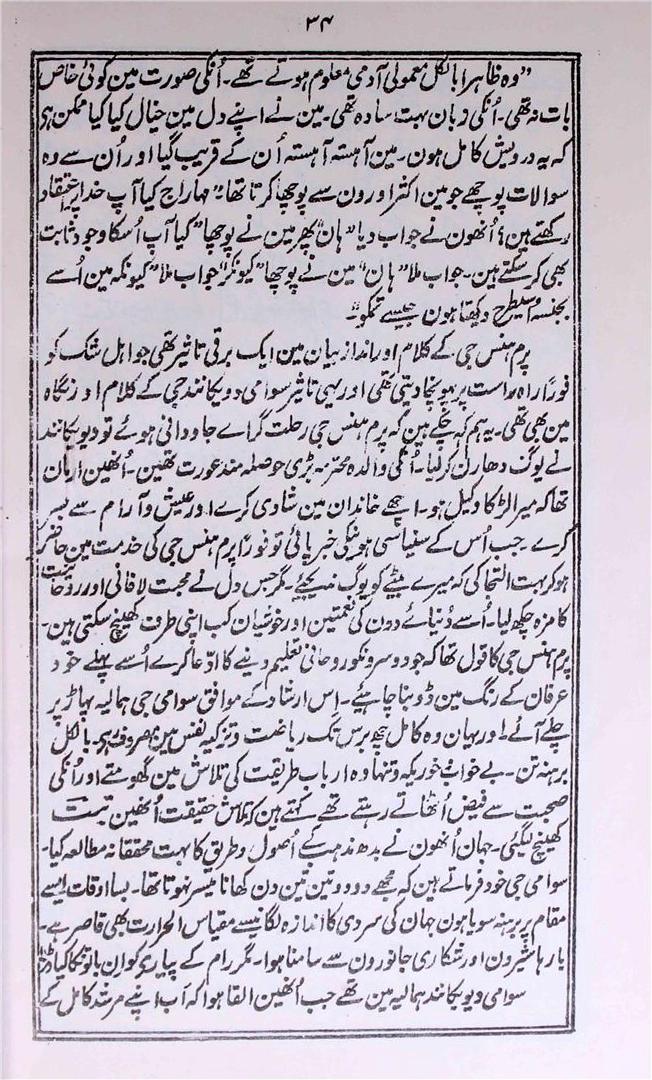 ۳۴
”وہ ظاہرا بالکل معمولی آدمی معلوم ہوتے تھے۔ اُنکی صورت مین کوئی خاص
بات نہ تھی۔ اُنکی زبان بہت سادہ تھی۔ مین نے اپنے دل مین خیال کیا کیا ممکن ہی
کہ یہ درویش کامل ہون۔ مین آہستہ آہستہ اُن کے قریب گیا اور اُن سے وہ
سوالات پوچھے جو مین اکثر اورون سے پوچھا کرتا تھا۔ ”مہاراج کیا آپ خدا پر اعتقاد
رکھتے ہین؟ اُنھون نے جواب دیا ”ہان“ پھر مین نے پوچھا ”کیا آپ اُسکا وجود ثابت
بھی کر سکتے ہین۔ جواب ملا ”ہان“ مین نے پوچھا ”کیونکر“ جواب ملا ”کیونکہ مین اُسے
بجنسہ اسیطرح دیکھتا ہون جیسے تمکو“
پرم ہنس جی کے کلام اور انداز بیان مین ایک برقی تاثیر تھی جو اہل شک کو
فوراً راہ راست پر پہونچا دیتی تھی اور یہی تاثیر سوامی وویکانند جی کے کلام اور نگاہ
مین بھی تھی۔ یہ ہم کہہ چکے ہین کہ پرم ہنس جی رحلت گراے جاودانی ہوئے تو ویویکانند
نے یوگ دھارن کر لیا۔ اُنکی والدہ محترمہ بڑی حوصلہ مند عورت تھین۔ اُنھین ارمان
تھا کہ میرا لڑکا وکیل ہو۔ اچھے خاندان مین شادی کرے اور عیش و آرام سے بسر
کرے۔ جب اُس کے سنیاسی ہونیکی خبر پائی تو فوراً پرم ہنس جی کی خدمت مین حاضر
ہو کر بہت التجا کی کہ میرے بیٹے کو یوگ ندیجئے۔ مگر جس دل نے محبت لافانی اور روحانیت
کا مزہ چکھ لیا۔ اُسے دُنیاے دون کی نعمتین اور خوشیان کب اپنی طرف کھینچ سکتی ہین۔
پرم ہنس جی کا قول تھا کہ جو دوسرونکو روحانی تعلیم دینے کا ادّعا کرے اُسے پہلے خود
عرفان کے رنگ مین ڈوبنا چاہیے۔ اِس ارشاد کے موافق سوامی جی ہمالیہ پہاڑ پر
چلے آئے اور یہان وہ کامل چھ برس تک ریاضت و تزکیہ نفس مین مصروف رہے۔ بالکل
برہنہ تن۔ بے خواب و خور یکہ و تنہا وہ ارباب طریقت کی تلاش مین گھومتے اور اُنکی
صحبت سے فیض اُٹھاتے رہتے تھے۔ کہتے ہین کہ تلاش حقیقت اُنھین تبت
کھینچ لیگئی۔ جہان اُنھون نے بدھ مذہب کے اُصول و طریق کا بہت محققانہ مطالعہ کیا۔
سوامی جی خود فرماتے ہین کہ مجھے دو دو تین تین دن کھانا میسر نہوتا تھا۔ بسا اوقات ایسے
مقام پر برہنہ سویا ہون جہان کی سردی کا اندازہ لگانیسے مقیاس الحرارت بھی قاصر ہے۔
بارہا شیرون اور شکاری جانورون سے سامنا ہوا۔ مگر رام کے پیارے کو ان باتونکا کیا ڈر
سوامی ویویکانند ہمالیہ مین تھے جب اُنھین القا ہوا کہ آب اپنے مرشد کامل کے